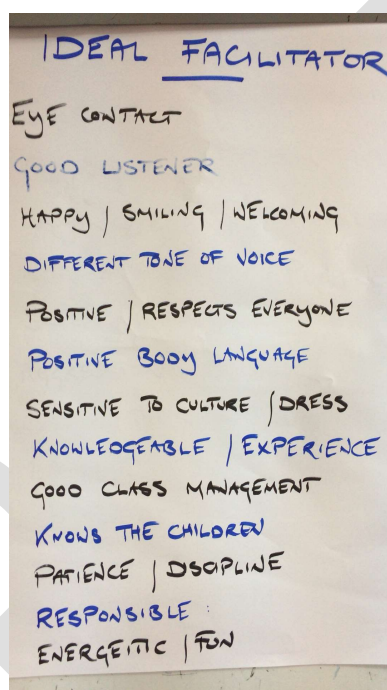 IDEAL FACILITATOR
EyE CONTACT
GOOD LISTENER
HAPPY / SMILING / WELCOMING
DIFFERENT TONE OF VOICE
POSITIVE / RESPECTS EVERYONE
POSITIVE BODY LANGUAGE
SENSITIVE TO CULTURE / DRESS
KNOWLEDGEABLE / EXPERIENCE
GOOD CLASS MANAGEMENT
KNOWS THE CHILDREN
PATIENCE / DSCIPLINE
RESPONSIBLE
ENERGEITIC / FUN